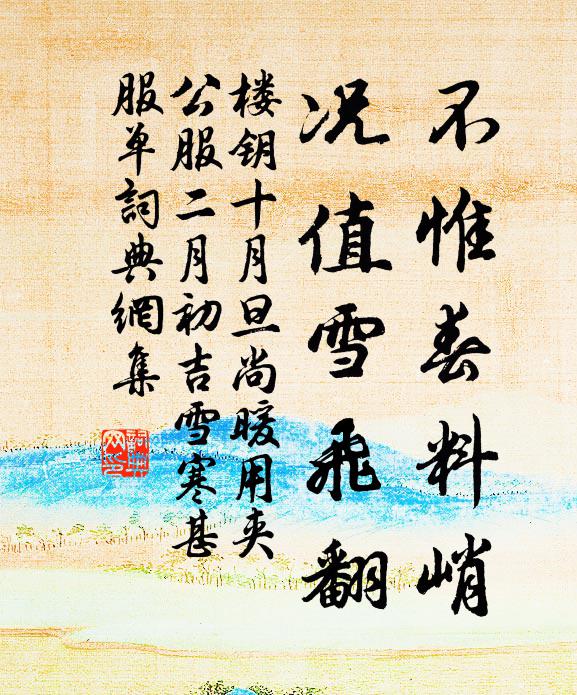 不惟春料峭
况值雪飛翻
楼钥十月旦尚暖用夹
公服二月初吉雪寒甚
服单詞典網集